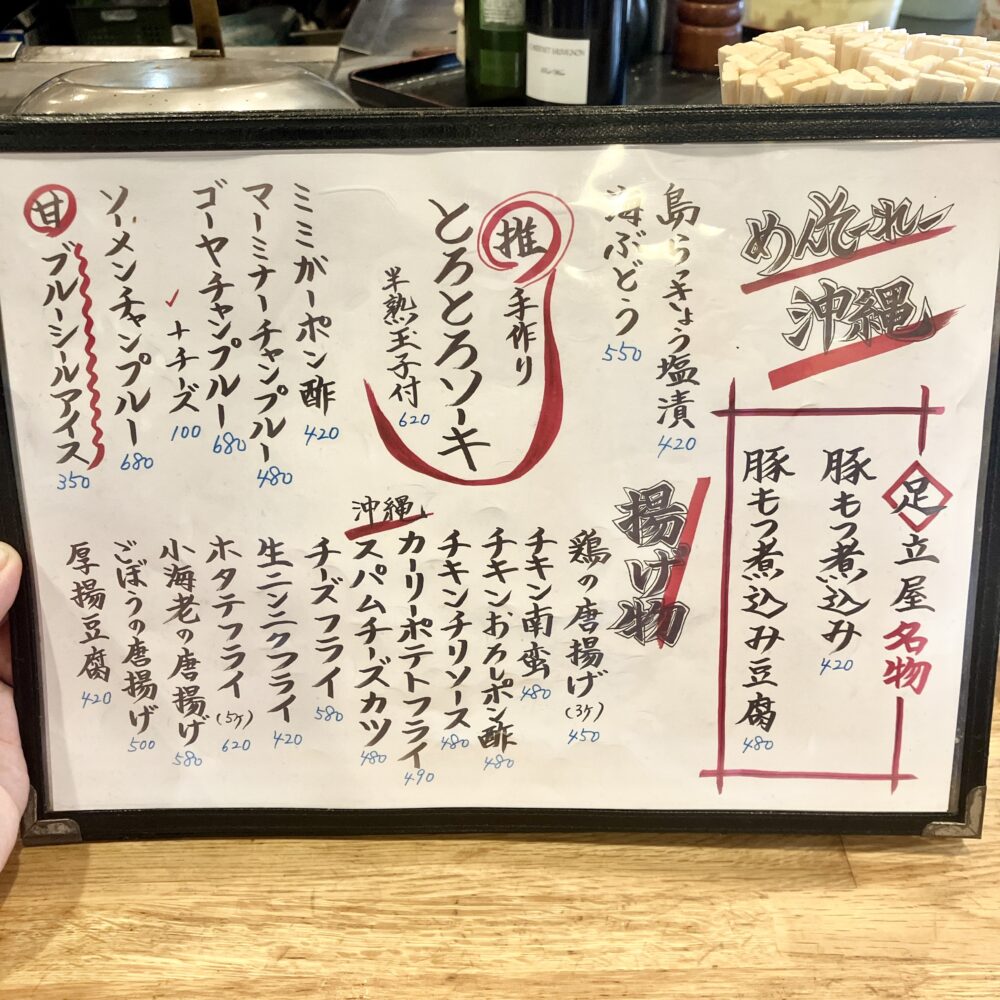 めんそーれー
沖縄
島らっきょう塩漬 420
海ぶどう 550
推 手作り
とろとろソーキ
半熟玉子付 620
ミミガーポン酢 420
マーミナーチャンプルー 480
ゴーヤチャンプルー 680
+チーズ 100
ソーメンチャンプルー 680
甘 ブルーシールアイス 350
足立屋名物
豚もつ煮込み 420
豚もつ煮込み豆腐 480
揚げ物
鶏の唐揚げ(3ケ) 450
チキン南蛮 480
チキンおろしポン酢 480
チキンチリソース 480
カーリーポテトフライ 490
沖縄 スパムチーズカツ 480
チーズフライ 580
生ニンニクフライ 420
ホタテフライ(5ケ) 620
小海老の唐揚げ 580
ごぼうの唐揚げ 500
厚揚豆腐 420
CABERNET SAUVIGNON